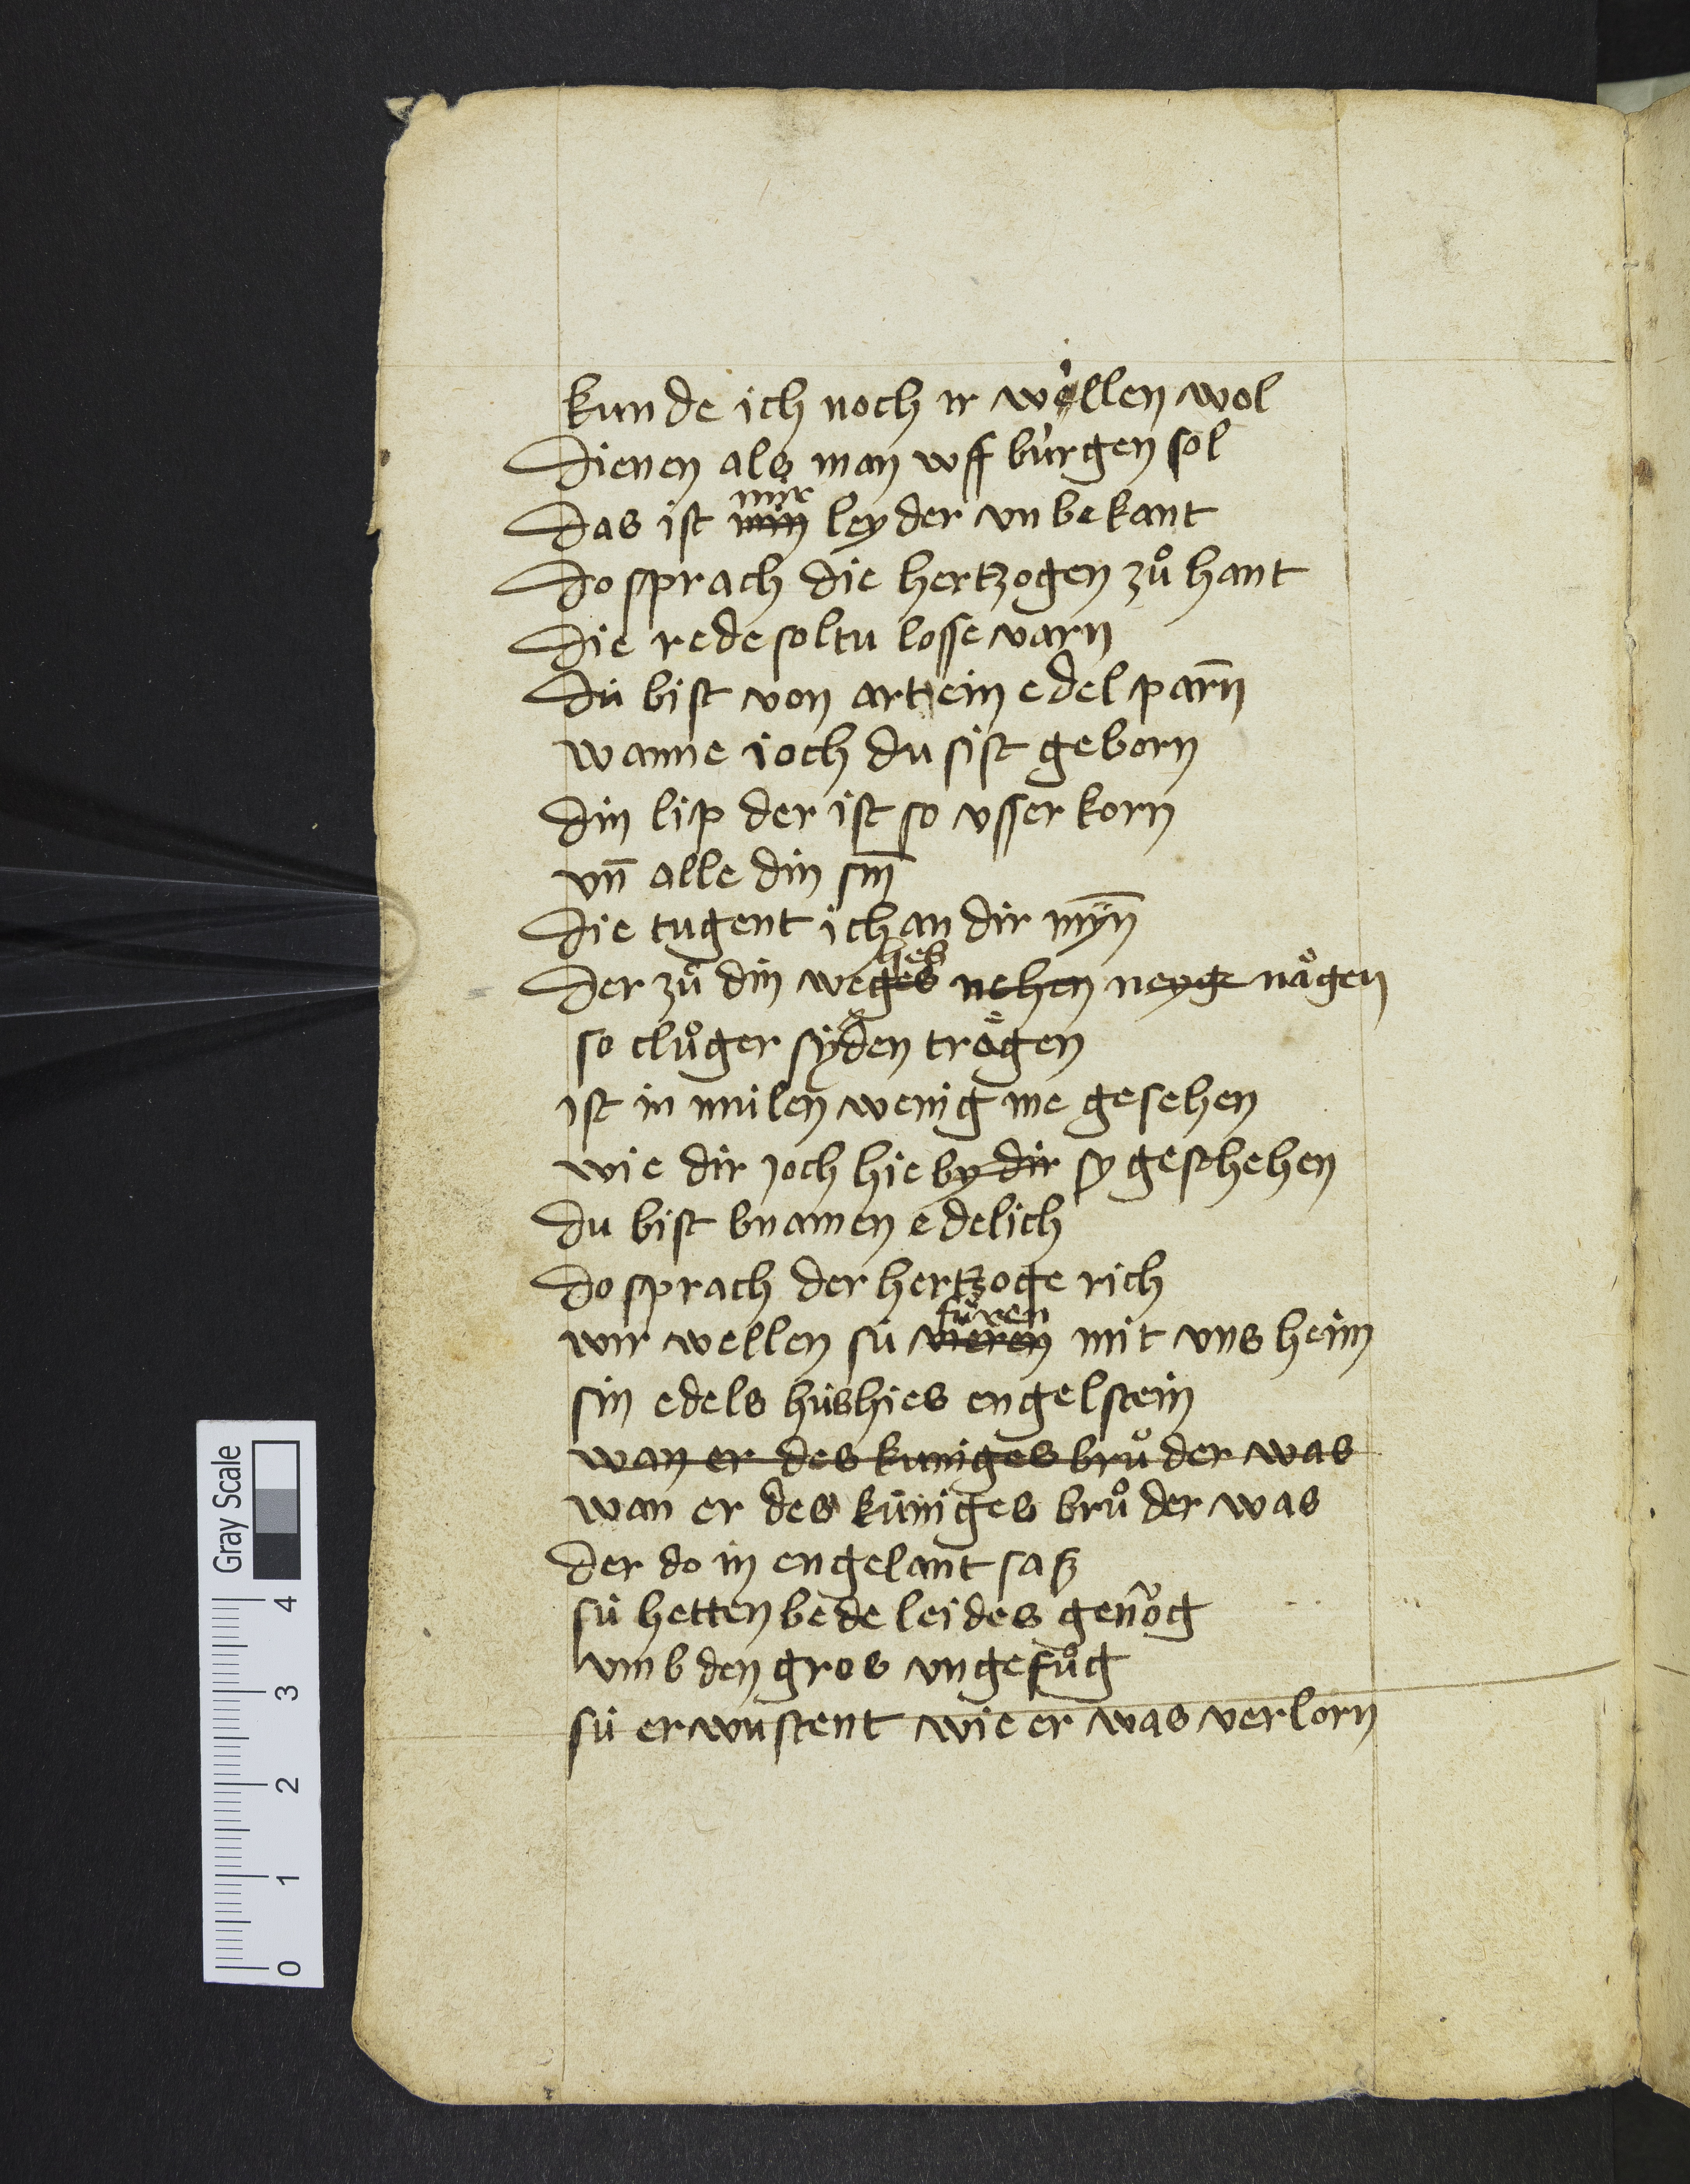 kunde ich noch ir wöllen wol
Dienen als man vff bürgen sol
mir
Das ist min leyder vnbekant
Do sprach die hertzogen zů hant
Die rede soltu losse varn
Du bist von art ein edel parn̄
wanne ioch du sist geborn
Din lip der ist so vsser korn
vn̄ alle din sin̄
Die tugent ich an dir mÿn̄
hes
Der zů din weges nehen neyge nǒgen
so clůger syden trǒgen
ist in milen wenig me gesehen
wie dir joch hie by dir sy geschehen
Du bist bnamen edelich
Do sprach der hertzoge rich
füren
wir wellen sü vieren mit vns heim
sin edels hüs hies engelstein
wan er des kuniges brůder was
wan er des küniges brůder was
Der do in engelant saß
sü hetten bede leides genǒg
vmb den gros vngefůg
sü erwustent wie er was verlorn
Gray Scale
4
3
2
1
0